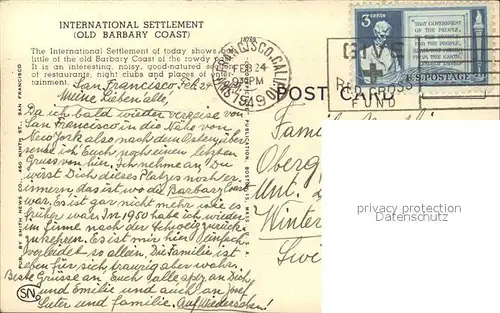 INTERNATIONAL SETTLEMENT
(OLD BARBARY COAST)
The International Settlement of today shows but
little of the old Barbary Coast of the rowdy
It is an interesting, noisy, good-natured
of restaurants, night clubs and places of enter-
tainment.
San Francisco Feb. 24
Meine Lieben alle,
Da ich bald wieder verreise von
San Francisco in die Nähe von
New York also nach dem Osten über
sende ich Euch noch einen letzten
Gruss von hier. Ich nehme an Du
wirst Dich dieses Platzes noch er
innern das ist, wo die Barbary Coast
war. Es ist gar nicht mehr wie es
früher war. In 1950 habe ich wieder
im Sinne nach der Schweiz zurück-
zukehren. Es ist mir hier einfach
verleidet so allein. Die Familie ist
eben für sich, traurig aber wahr.
Beste Grüsse an Euch alle
und Emilie und auch an Josef
Suter und Familie. Auf Wiedersehen!
PUB. BY SMITH NEWS CO., 460 NINTH ST., SAN FRANCISCO
SN
PUBLICATION, BOSTON 15, MASS., U. S. A.
SAN FRANCISCO, CALIF.
FEB 24
9 PM
1949
GIVE
RED CROSS
FUND
3 cents
THAT GOVERNMENT
OF THE PEOPLE,
BY THE PEOPLE,
FOR THE PEOPLE,
SHALL NOT PERISH
FROM THE EARTH.
U.S. POSTAGE
POST CA
Fami
Oberg
Unt.
Winter
Swi
Bild wg.
Datenschutz